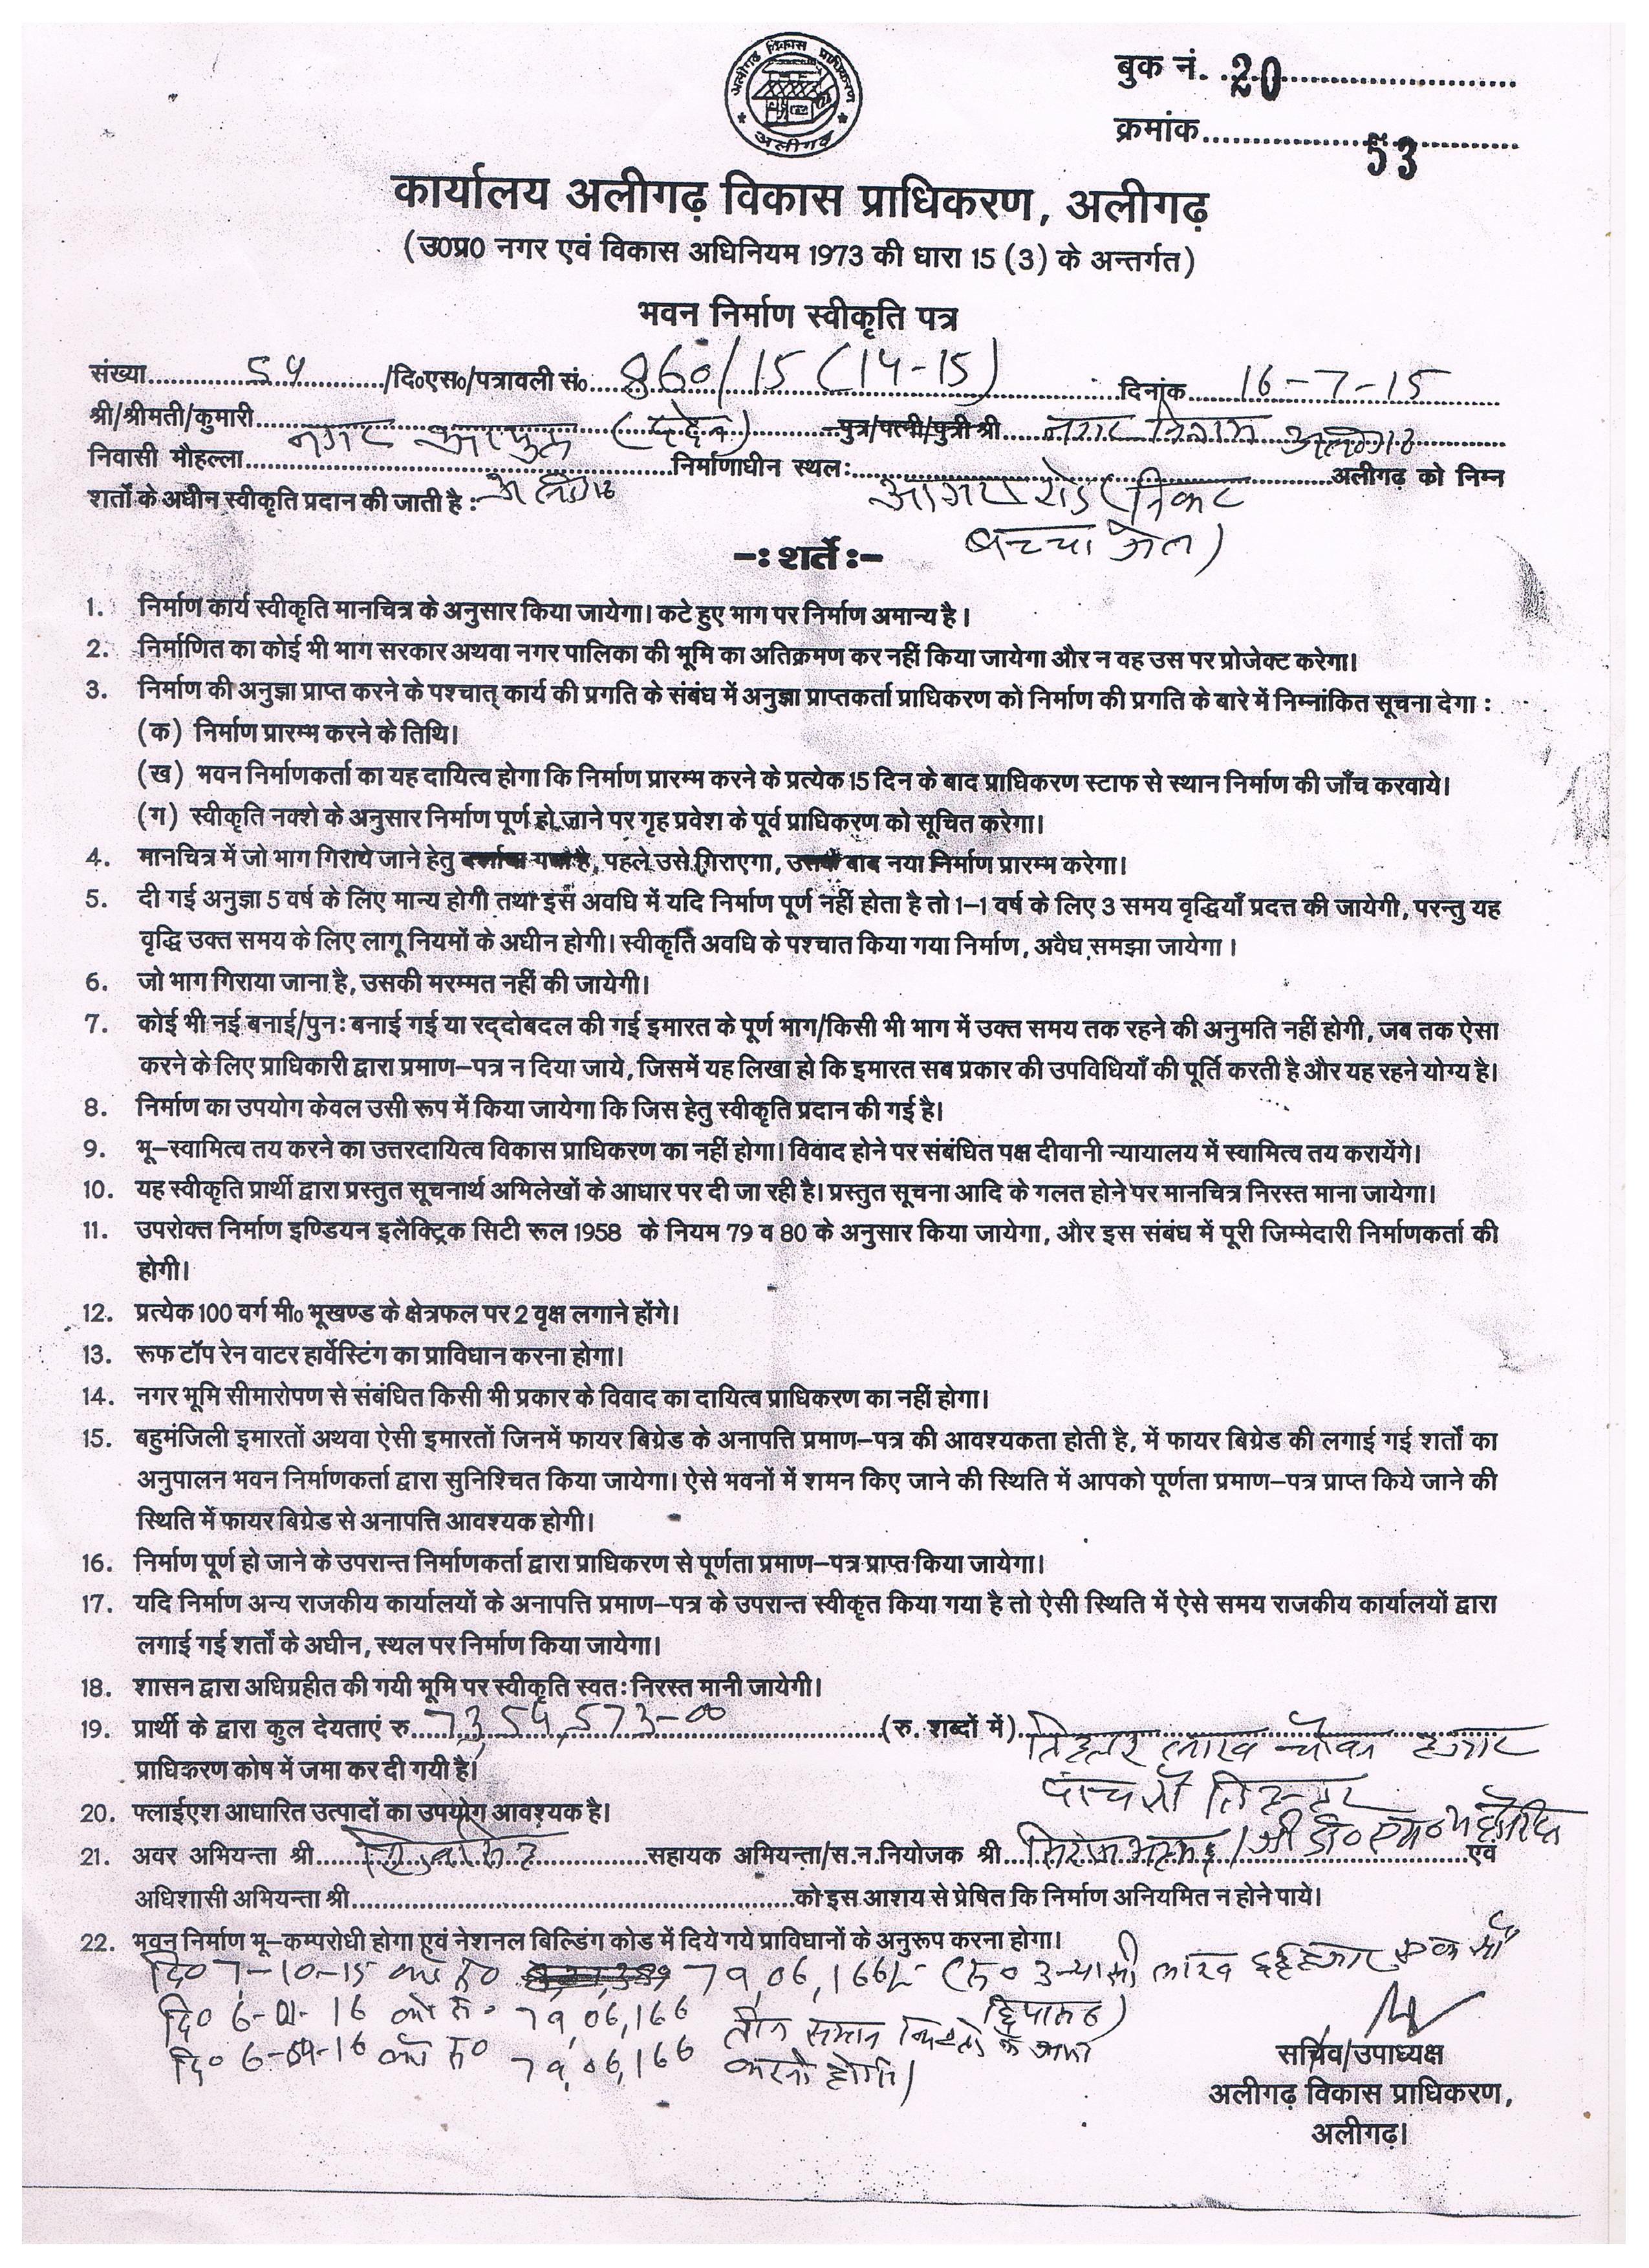 अलीगढ़ विकास प्राधिकरण
अलीगढ़
बुक नं. 20
क्रमांक 53
कार्यालय अलीगढ़ विकास प्राधिकरण, अलीगढ़
(उ0प्र0 नगर एवं विकास अधिनियम 1973 की धारा 15 (3) के अन्तर्गत)
भवन निर्माण स्वीकृति पत्र
संख्या 54 /दि०एस०/पत्रावली सं० 860/15 (14-15) दिनांक 16-7-15
श्री/श्रीमती/कुमारी नगर आयुक्त पुत्र/पत्नी/पुत्री श्री नगर निगम अलीगढ़
निवासी मौहल्ला अलीगढ़ निर्माणाधीन स्थल: आगरा रोड (निकट बच्चा जेल) अलीगढ़ को निम्न
शर्तों के अधीन स्वीकृति प्रदान की जाती है :
-: शर्ते :-
1. निर्माण कार्य स्वीकृति मानचित्र के अनुसार किया जायेगा। कटे हुए भाग पर निर्माण अमान्य है।
2. निर्माणित का कोई भी भाग सरकार अथवा नगर पालिका की भूमि का अतिक्रमण कर नहीं किया जायेगा और न वह उस पर प्रोजेक्ट करेगा।
3. निर्माण की अनुज्ञा प्राप्त करने के पश्चात् कार्य की प्रगति के संबंध में अनुज्ञा प्राप्तकर्ता प्राधिकरण को निर्माण की प्रगति के बारे में निम्नांकित सूचना देगा :
(क) निर्माण प्रारम्भ करने के तिथि।
(ख) भवन निर्माणकर्ता का यह दायित्व होगा कि निर्माण प्रारम्भ करने के प्रत्येक 15 दिन के बाद प्राधिकरण स्टाफ से स्थान निर्माण की जाँच करवाये।
(ग) स्वीकृति नक्शे के अनुसार निर्माण पूर्ण हो जाने पर गृह प्रवेश के पूर्व प्राधिकरण को सूचित करेगा।
4. मानचित्र में जो भाग गिराये जाने हेतु दर्शाया गया है, पहले उसे गिराएगा, उसके बाद नया निर्माण प्रारम्भ करेगा।
5. दी गई अनुज्ञा 5 वर्ष के लिए मान्य होगी तथा इस अवधि में यदि निर्माण पूर्ण नहीं होता है तो 1-1 वर्ष के लिए 3 समय वृद्धियाँ प्रदत्त की जायेगी, परन्तु यह
वृद्धि उक्त समय के लिए लागू नियमों के अधीन होगी। स्वीकृति अवधि के पश्चात किया गया निर्माण, अवैध समझा जायेगा।
6. जो भाग गिराया जाना है, उसकी मरम्मत नहीं की जायेगी।
7. कोई भी नई बनाई/पुन: बनाई गई या रद्दोबदल की गई इमारत के पूर्ण भाग/किसी भी भाग में उक्त समय तक रहने की अनुमति नहीं होगी, जब तक ऐसा
करने के लिए प्राधिकारी द्वारा प्रमाण-पत्र न दिया जाये, जिसमें यह लिखा हो कि इमारत सब प्रकार की उपविधियाँ की पूर्ति करती है और यह रहने योग्य है।
8. निर्माण का उपयोग केवल उसी रूप में किया जायेगा कि जिस हेतु स्वीकृति प्रदान की गई है।
9. भू-स्वामित्व तय करने का उत्तरदायित्व विकास प्राधिकरण का नहीं होगा। विवाद होने पर संबंधित पक्ष दीवानी न्यायालय में स्वामित्व तय करायेंगे।
10. यह स्वीकृति प्रार्थी द्वारा प्रस्तुत सूचनार्थ अभिलेखों के आधार पर दी जा रही है। प्रस्तुत सूचना आदि के गलत होने पर मानचित्र निरस्त माना जायेगा।
11. उपरोक्त निर्माण इण्डियन इलैक्ट्रिक सिटी रूल 1958 के नियम 79 व 80 के अनुसार किया जायेगा, और इस संबंध में पूरी जिम्मेदारी निर्माणकर्ता की
होगी।
12. प्रत्येक 100 वर्ग मी० भूखण्ड के क्षेत्रफल पर 2 वृक्ष लगाने होंगे।
13. रूफ टॉप रेन वाटर हार्वेस्टिंग का प्राविधान करना होगा।
14. नगर भूमि सीमारोपण से संबंधित किसी भी प्रकार के विवाद का दायित्व प्राधिकरण का नहीं होगा।
15. बहुमंजिली इमारतों अथवा ऐसी इमारतों जिनमें फायर बिग्रेड के अनापत्ति प्रमाण-पत्र की आवश्यकता होती है, में फायर बिग्रेड की लगाई गई शर्तों का
अनुपालन भवन निर्माणकर्ता द्वारा सुनिश्चित किया जायेगा। ऐसे भवनों में शमन किए जाने की स्थिति में आपको पूर्णता प्रमाण-पत्र प्राप्त किये जाने की
स्थिति में फायर बिग्रेड से अनापत्ति आवश्यक होगी।
16. निर्माण पूर्ण हो जाने के उपरान्त निर्माणकर्ता द्वारा प्राधिकरण से पूर्णता प्रमाण-पत्र प्राप्त किया जायेगा।
17. यदि निर्माण अन्य राजकीय कार्यालयों के अनापत्ति प्रमाण-पत्र के उपरान्त स्वीकृत किया गया है तो ऐसी स्थिति में ऐसे समय राजकीय कार्यालयों द्वारा
लगाई गई शर्तों के अधीन, स्थल पर निर्माण किया जायेगा।
18. शासन द्वारा अधिग्रहीत की गयी भूमि पर स्वीकृति स्वत: निरस्त मानी जायेगी।
19. प्रार्थी के द्वारा कुल देयताएं रु. 73,54,573-00 (रु. शब्दों में) तिहत्तर लाख चौवन हजार
पांच सौ तिहत्तर
प्राधिकरण कोष में जमा कर दी गयी है।
20. फ्लाईएश आधारित उत्पादों का उपयोग आवश्यक है।
21. अवर अभियन्ता श्री सहायक अभियन्ता/स.न.नियोजक श्री एवं
अधिशासी अभियन्ता श्री को इस आशय से प्रेषित कि निर्माण अनियमित न होने पाये।
22. भवन निर्माण भू-कम्परोधी होगा एवं नेशनल बिल्डिंग कोड में दिये गये प्राविधानों के अनुरूप करना होगा।
दि० 7-10-15 को रु० 79,06,166/- (रु० उन्यासी लाख छह हजार एक सौ
छियासठ)
दि० 6-01-16 को रु० 79,06,166 तीन समान किश्तों के जमा
दि० 6-04-16 को रु० 79,06,166 करनी होगी)
सचिव/उपाध्यक्ष
अलीगढ़ विकास प्राधिकरण,
अलीगढ़।